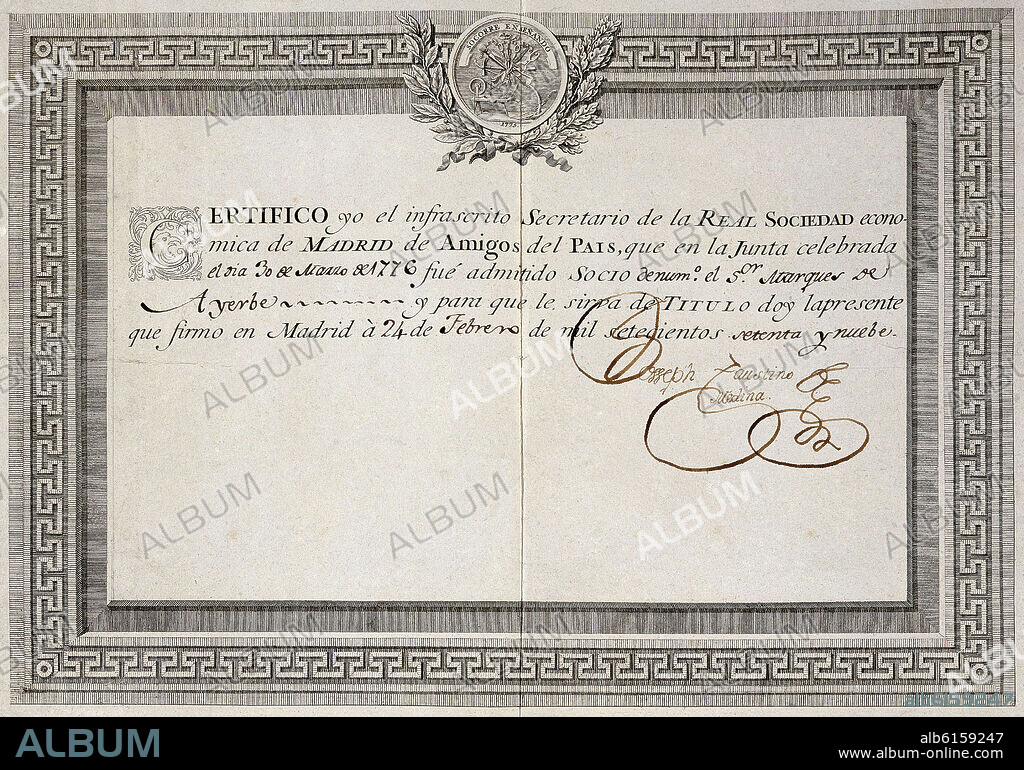 SOCORRE ENSEÑANDO
1775.
CERTIFICO yo el infrascrito Secretario de la REAL SOCIEDAD econo-
mica de MADRID de Amigos del PAIS, que en la Junta celebrada
el dia 30 de Marzo de 1776 fué admitido SOCIO de num.º el S.or Marques de
Ayerbe y para que le sirva de TITULO doy la presente
que firmo en Madrid à 24 de Febrero de mil setecientos setenta y nuebe.
Josseph Faustino
Medina.
ALBUM
alb6159247
www.album-online.com